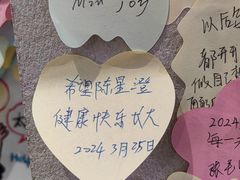 希望陈星澄
健康快乐长大
2024 3月25日
以后
都开
做自
2024
每一